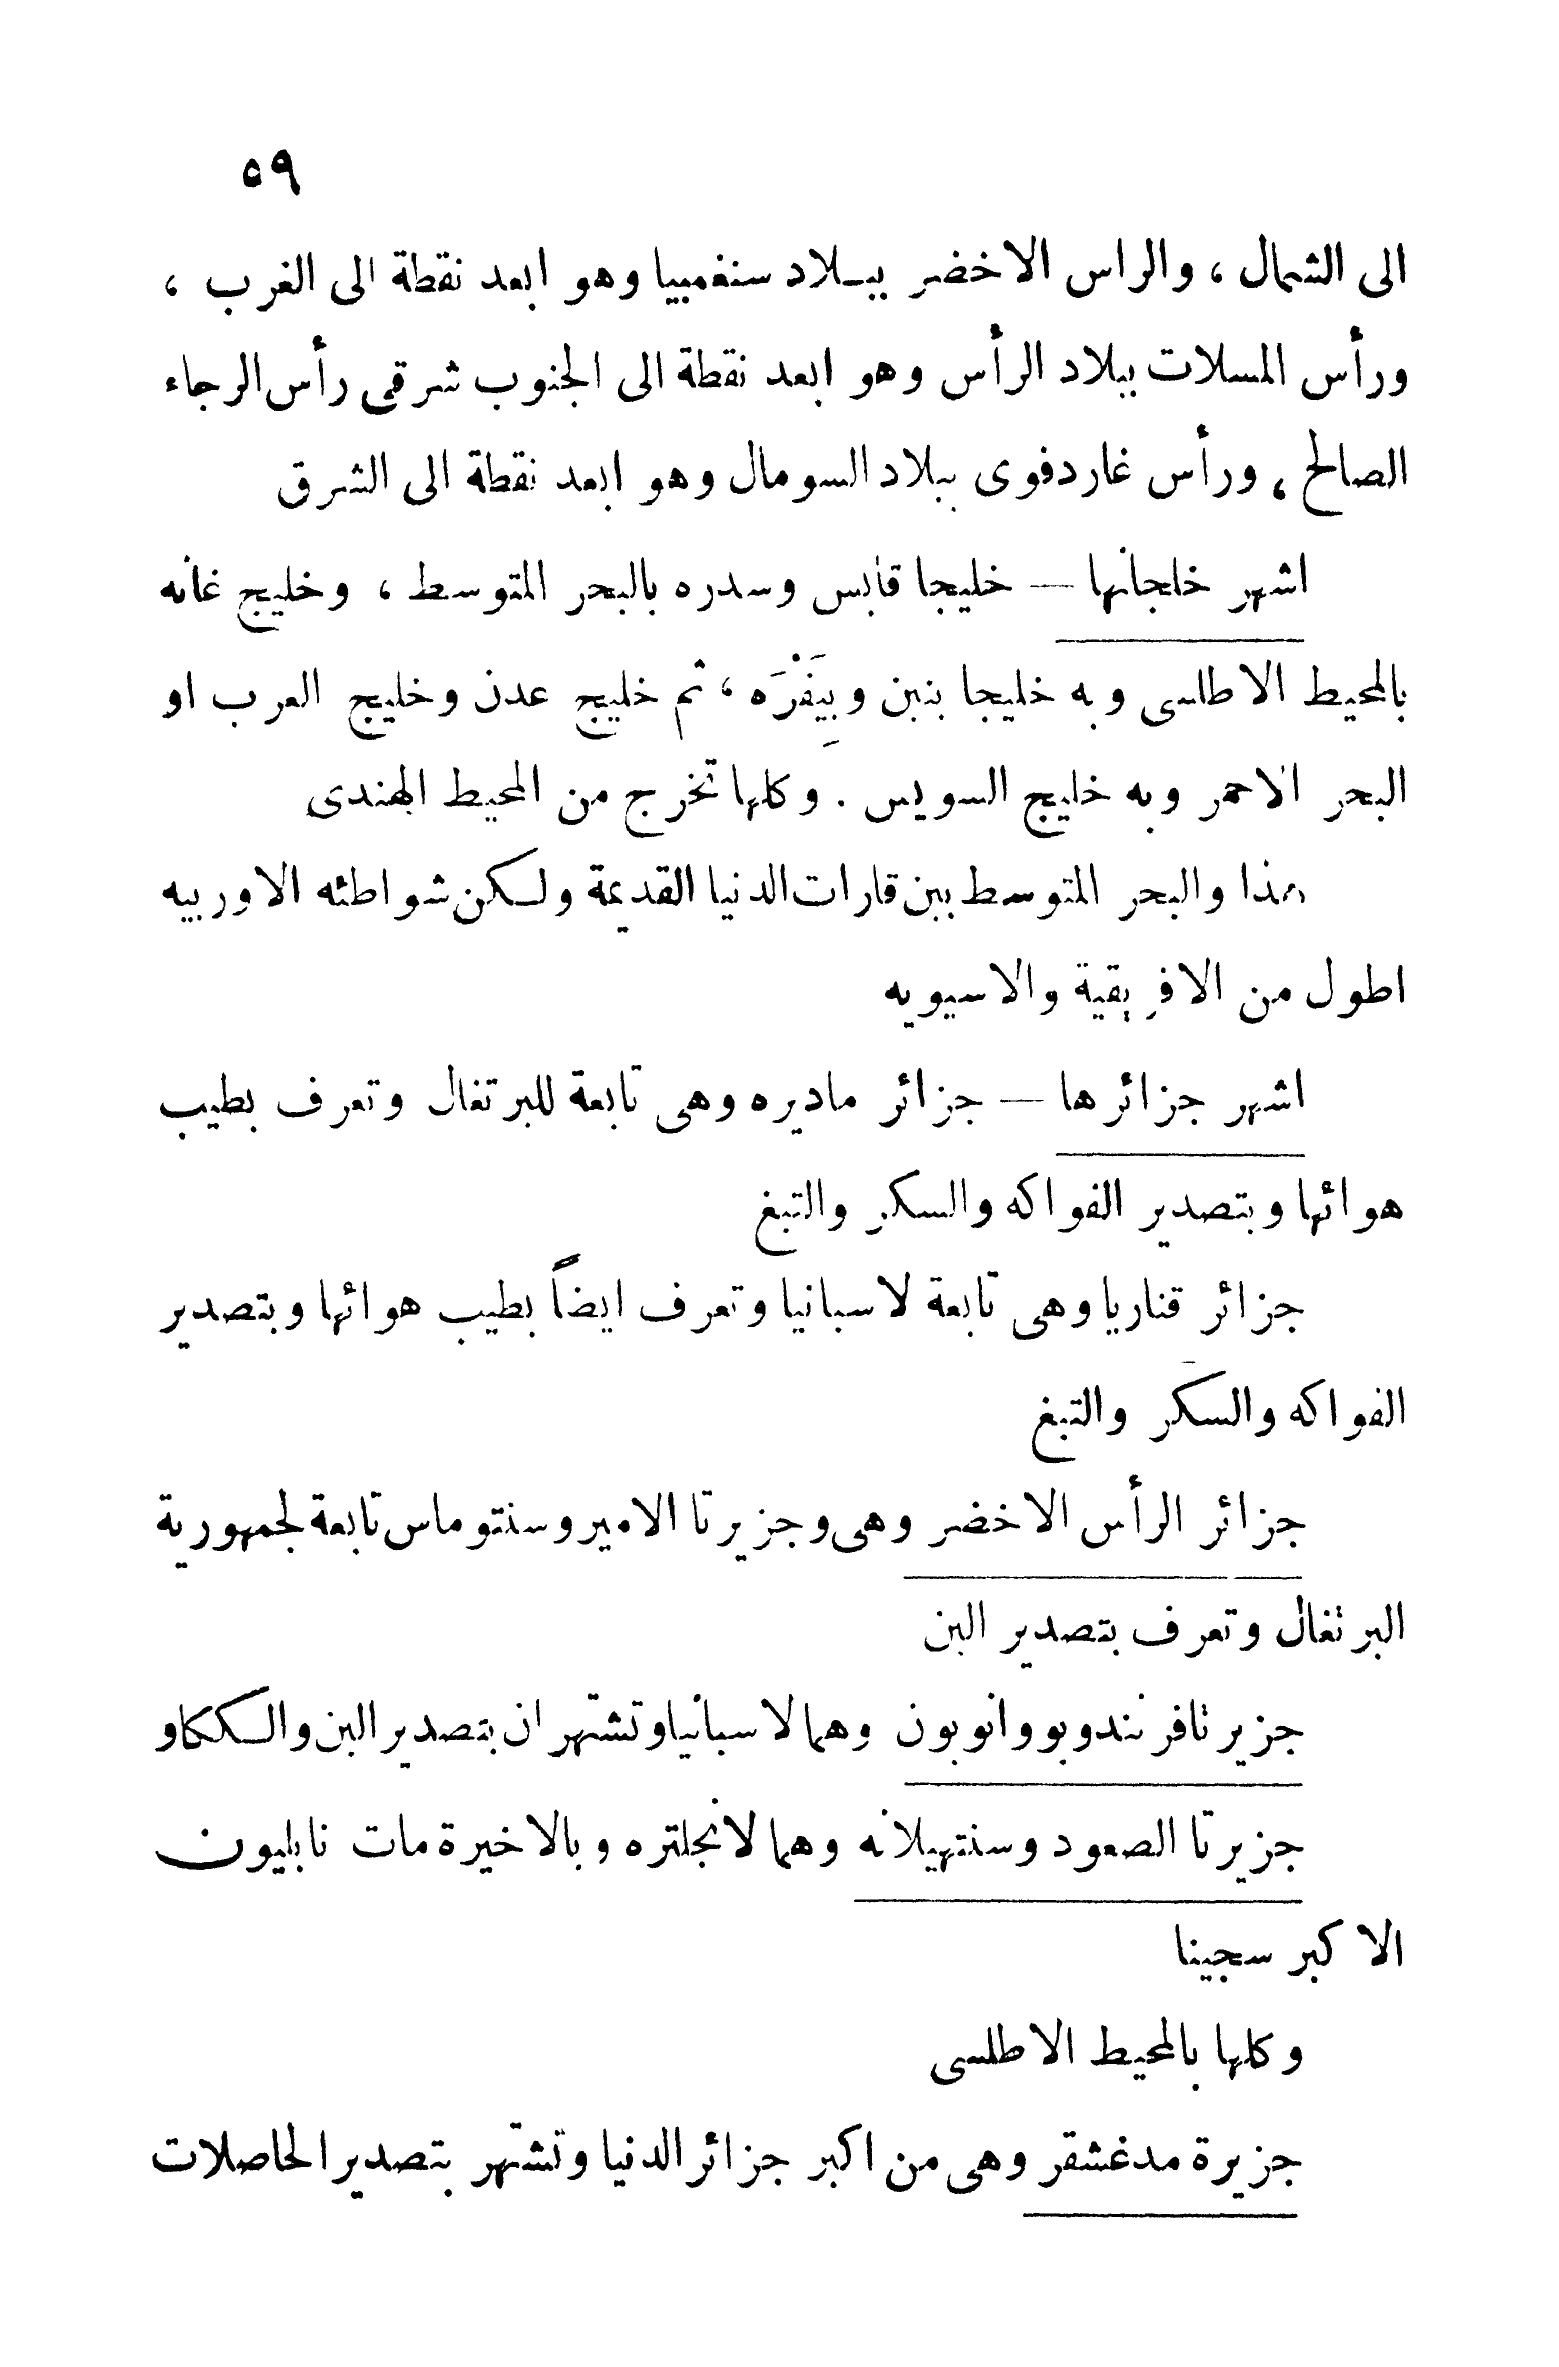 ٥٩
الى الشمال ، والراس الاخضر ببلاد سنغمبيا وهو ابعد نقطة الى الغرب ،
ورأس المسلات ببلاد الرأس وهو ابعد نقطة الى الجنوب شرقى رأس الرجاء
الصالح ، ورأس غاردفوى ببلاد السومال وهو ابعد نقطة الى الشرق
اشهر خلجانها — خليجا قابس وسدره بالبحر المتوسط ، وخليج غانه
بالمحيط الاطلسى وبه خليجا بنين وبِيَفْرَه ، ثم خليج عدن وخليج العرب او
البحر الاحمر وبه خليج السويس . وكلها تخرج من المحيط الهندى
هذا والبحر المتوسط بين قارات الدنيا القديمة ولكن شواطئه الاوربيه
اطول من الافريقية والاسيويه
اشهر جزائرها — جزائر ماديره وهى تابعة للبرتغال وتعرف بطيب
هوائها وبتصدير الفواكه والسكر والتبغ
جزائر قناريا وهى تابعة لاسبانيا وتعرف ايضاً بطيب هوائها وبتصدير
الفواكه والسكر والتبغ
جزائر الرأس الاخضر وهى وجزيرتا الامير وسنتوماس تابعة لجمهورية
البرتغال وتعرف بتصدير البن
جزيرتا فرنندوبو وانوبون وهما لاسبانيا وتشتهران بتصدير البن والككاو
جزيرتا الصعود وسنتهيلانه وهما لانجلتره وبالاخيرة مات نابليون
الاكبر سجينا
وكلها بالمحيط الاطلسى
جزيرة مدغشقر وهى من اكبر جزائر الدنيا وتشتهر بتصدير الحاصلات